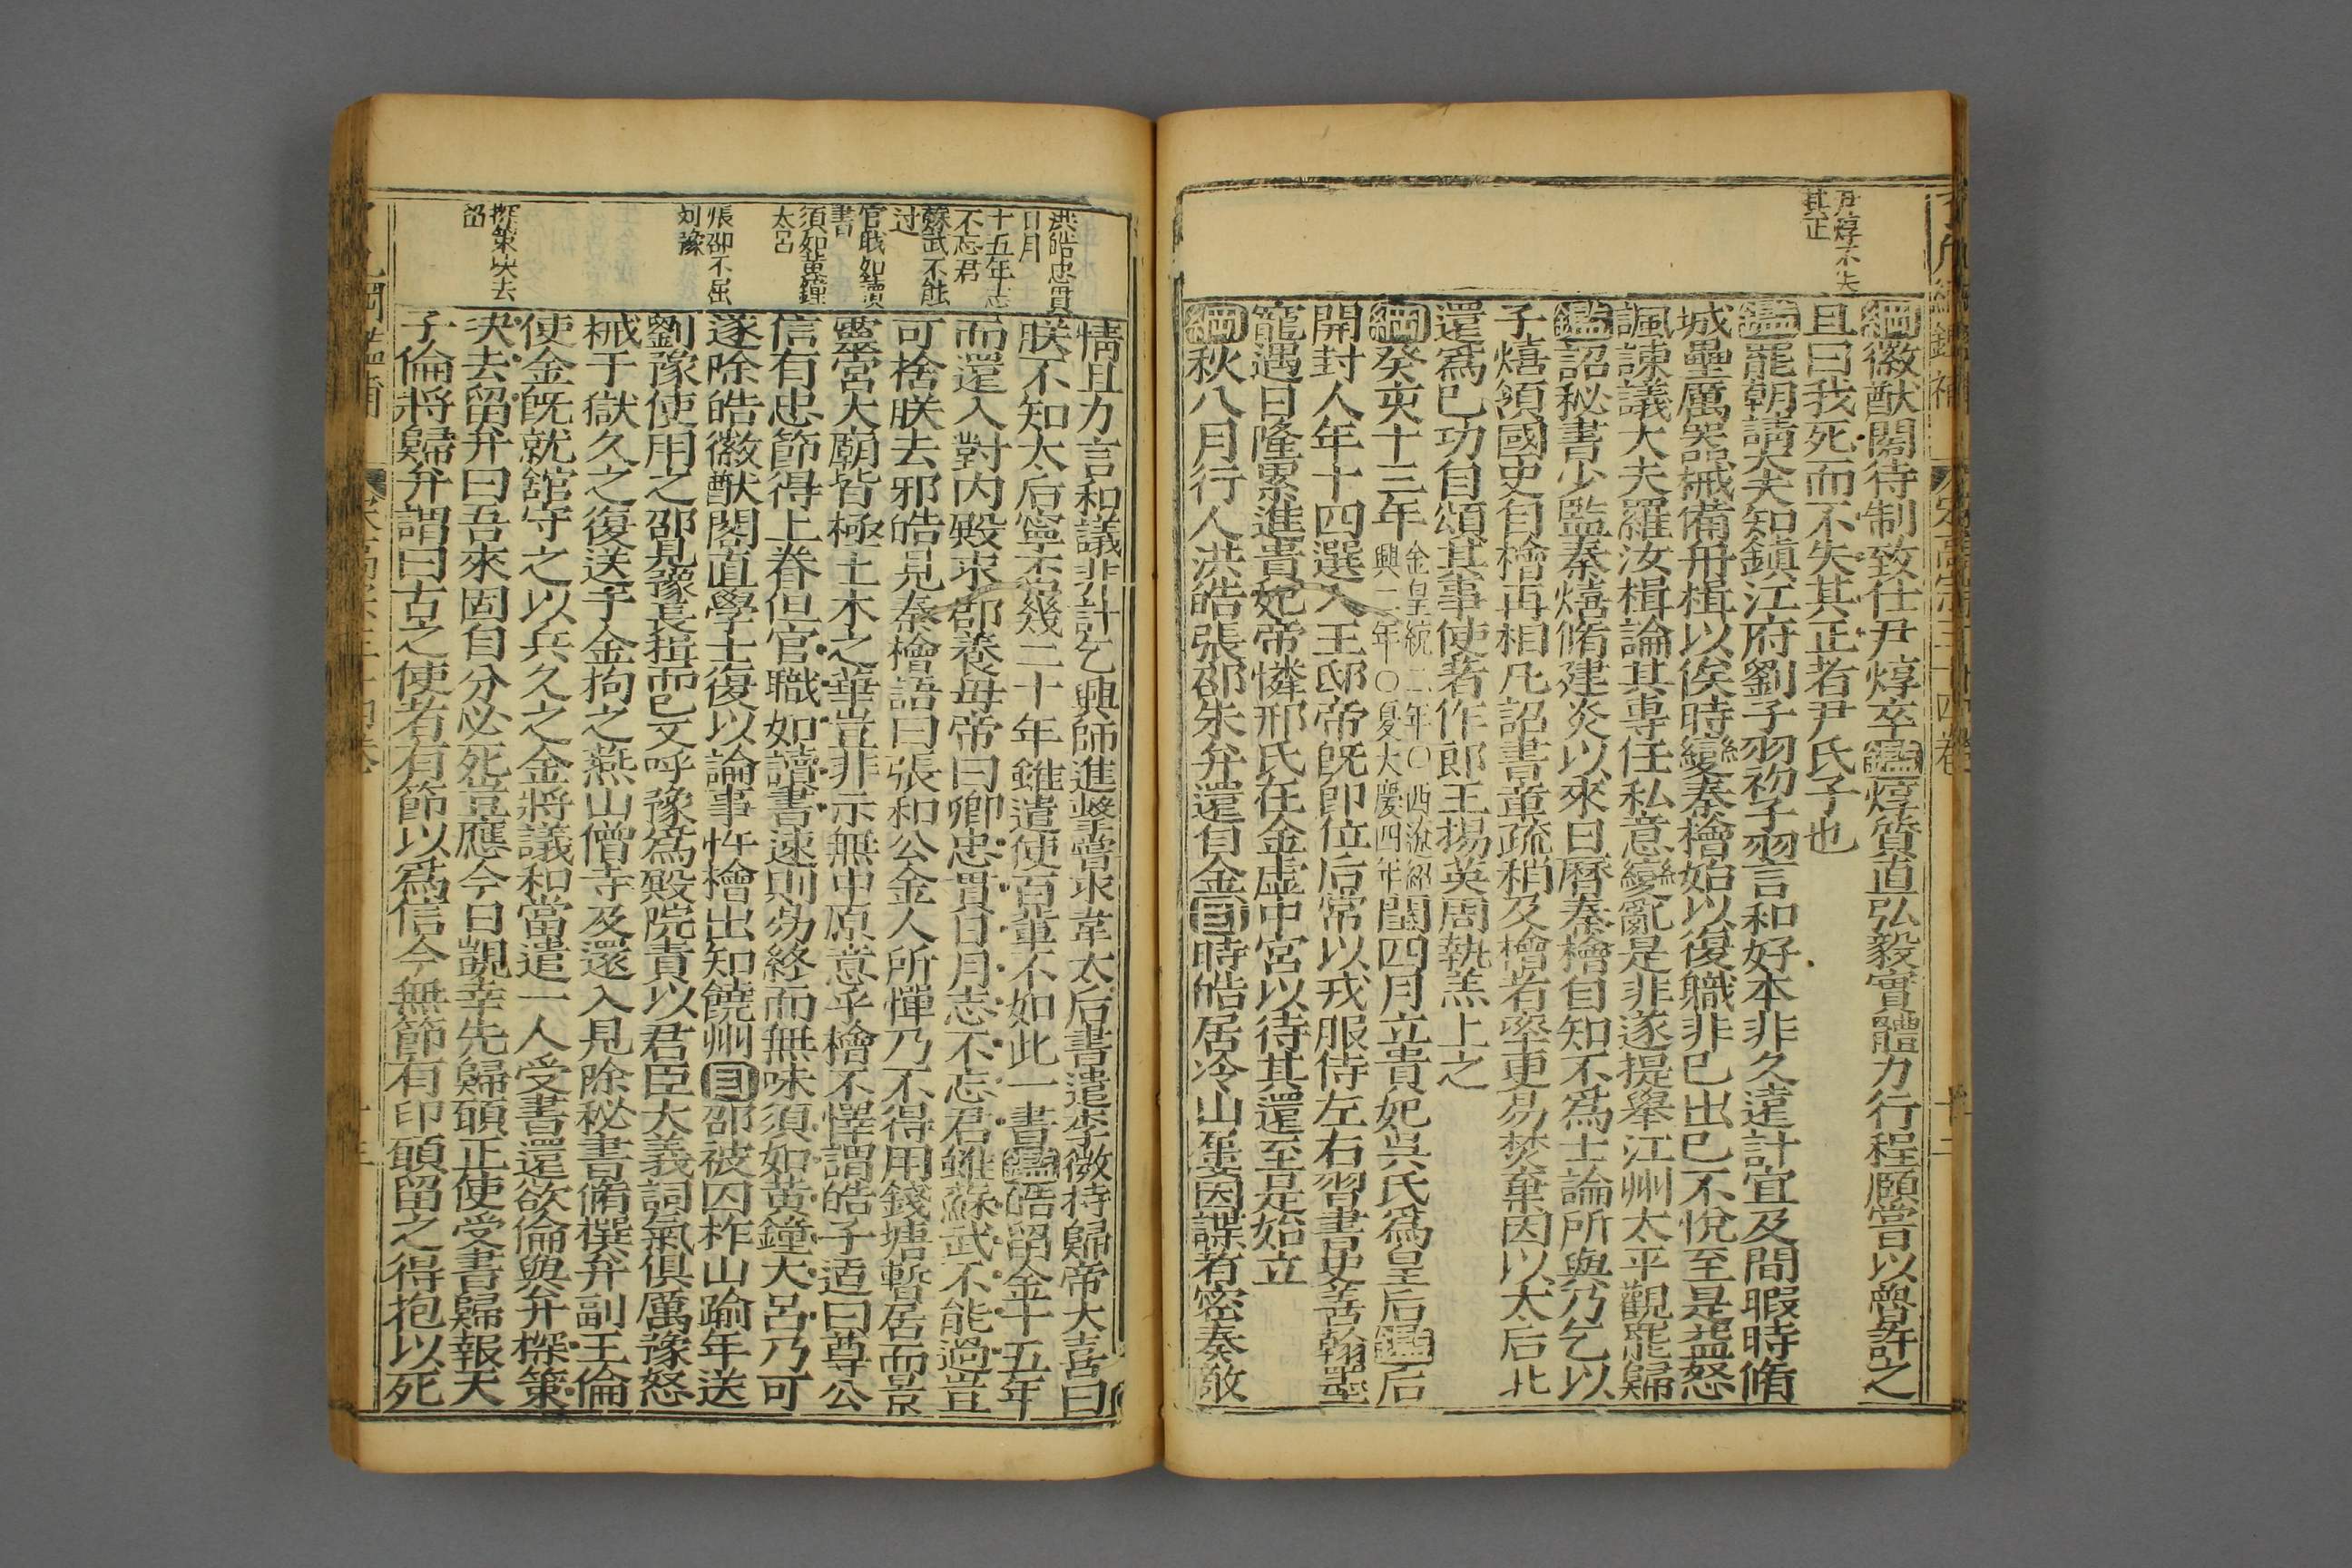 尹焞不失
其正
綱徽猷閣待制致仕尹焞卒鑑焞質直弘毅實體力行程頤嘗以魯許之
且曰我死而不失其正者尹氏子也
鑑罷朝請大夫知鎮江府劉子羽初子羽言和好本非久遠計宜及間暇時脩
城壘厲器械備舟楫以俟時變秦檜始以復職非已出已不悅至是益怒
諷諫議大夫羅汝楫論其專任私意變亂是非遂提舉江州太平觀罷歸
鑑詔秘書少監秦熺脩建炎以來日曆秦檜自知不爲士論所與乃乞以
子熺領國史自檜再相凡詔書章疏稍及檜者率更易焚棄因以太后北
還爲已功自頌其事使著作郎王揚英周執羔上之
綱癸亥十三年
金皇統三年〇西遼紹
興二年〇夏大慶四年
閏四月立貴妃吳氏爲皇后鑑后
開封人年十四選入王邸帝旣卽位后常以戎服侍左右習書史善翰墨
寵遇日隆累進貴妃帝憐邢氏在金虛中宮以待其還至是始立
綱秋八月行人洪皓張邵朱弁還自金目時皓居冷山屢因諜者密奏敵
洪皓忠貫
日月
十五年志
不忘君
蘇武不能
过
官戢如讀
書
須如黃鐘
太呂
張邵不屈
刘豫
探策决去
留
情且力言和議非計乞興師進擊嘗求韋太后書遣李微持歸帝大喜曰
朕不知太后寧否幾二十年雖遣使百輩不如此一書鑑皓留金十五年
而還入對內殿求郡養母帝曰卿忠貫日月志不忘君雖蘇武不能過豈
可捨朕去邪皓見秦檜語曰張和公金人所憚乃不得用錢塘暫居而景
靈宮大廟皆極土木之華豈非示無中原意乎檜不懌謂皓子适曰尊公
信有忠節得上眷但官職如讀書速則易終而無味須如黃鐘大呂乃可
遂除皓徽猷閣直學士復以論事忤檜出知饒州目邵被囚柞山踰年送
劉豫使用之邵見豫長揖而已又呼豫爲殿院責以君臣大義詞氣俱厲豫怒
械于獄久之復送于金拘之燕山僧寺及還入見除秘書脩撰弁副王倫
使金旣就舘守之以兵久之金將議和當遣一人受書還欲倫與弁探策
决去留弁曰吾來固自分必死豈應今日覬幸先歸願正使受書歸報天
子倫將歸弁謂曰古之使者有節以爲信今無節有印願留之得抱以死